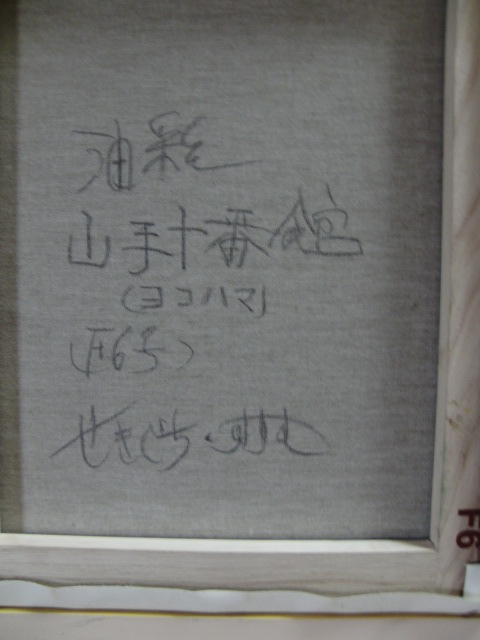 油彩
山手十番館
(ヨコハマ)
(F6号)
せきぐち・
F6